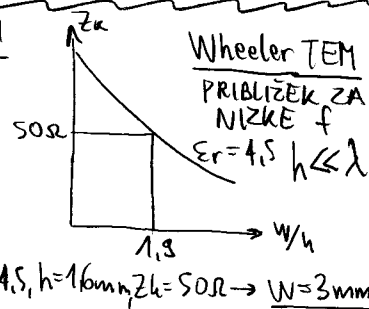 Zk
Wheeler TEM
PRIBLIŽEK ZA
NIZKE f
εr=4,5 h<<λ
50Ω
1,9
W/h
4,5, h=1,6mm, Zk=50Ω → W=3mm